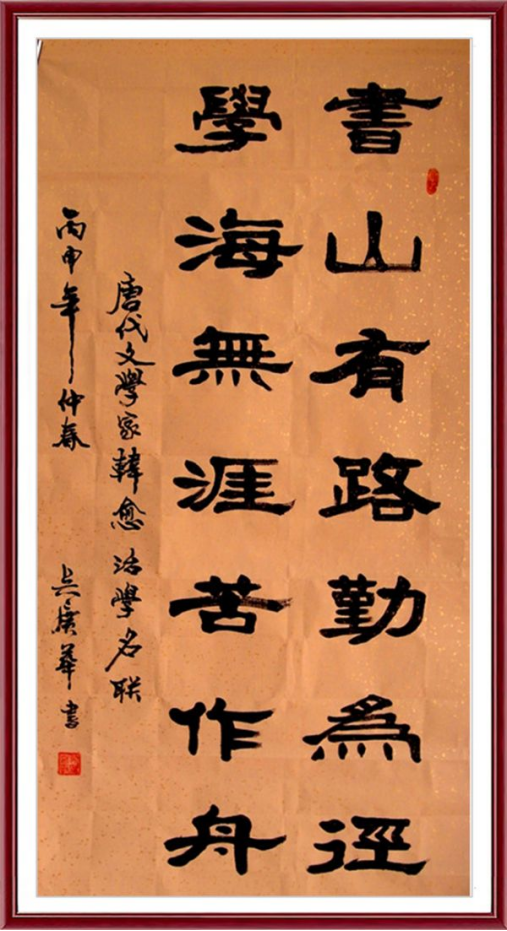 書山有路勤為徑
學海無涯苦作舟
唐代文學家韓愈治學名联
丙申年仲春 吳廣華書